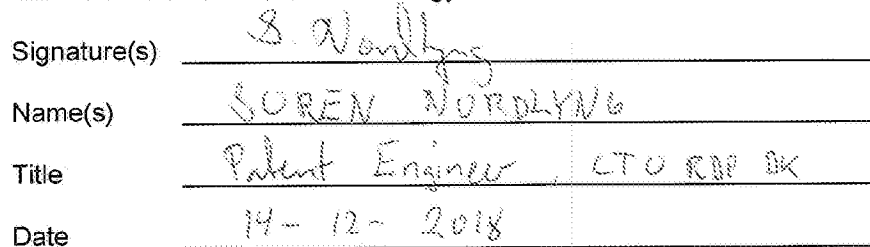 Signature(s) S. Nordlyng
Name(s) SOREN NORDLYNG
Title Patent Engineer, CTO RDP DK
Date 14-12-2018